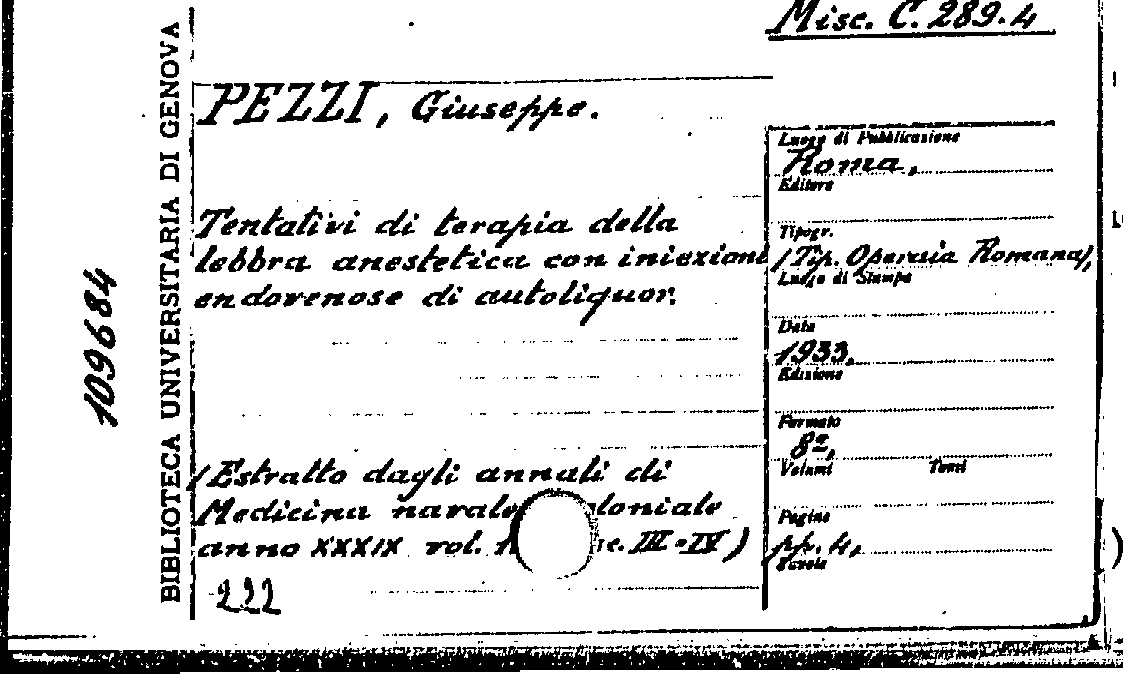 Misc. C. 289.4
BIBLIOTECA UNIVERSITARIA DI GENOVA
109684
PEZZI, Giuseppe.
Tentativi di terapia della
lebbra anestetica con iniezioni
endovenose di autoliquor.
(Estratto dagli annali di
Medicina navale coloniale
anno XXXIX vol. III-IV)
222
Luogo di Pubblicazione
Roma,
Editore
Tipogr.
(Tip. Operaia Romana),
Luogo di Stampa
Data
1933,
Edizione
Formato
8º,
Volumi Tomi
Pagine
pp. 4,
Tavole